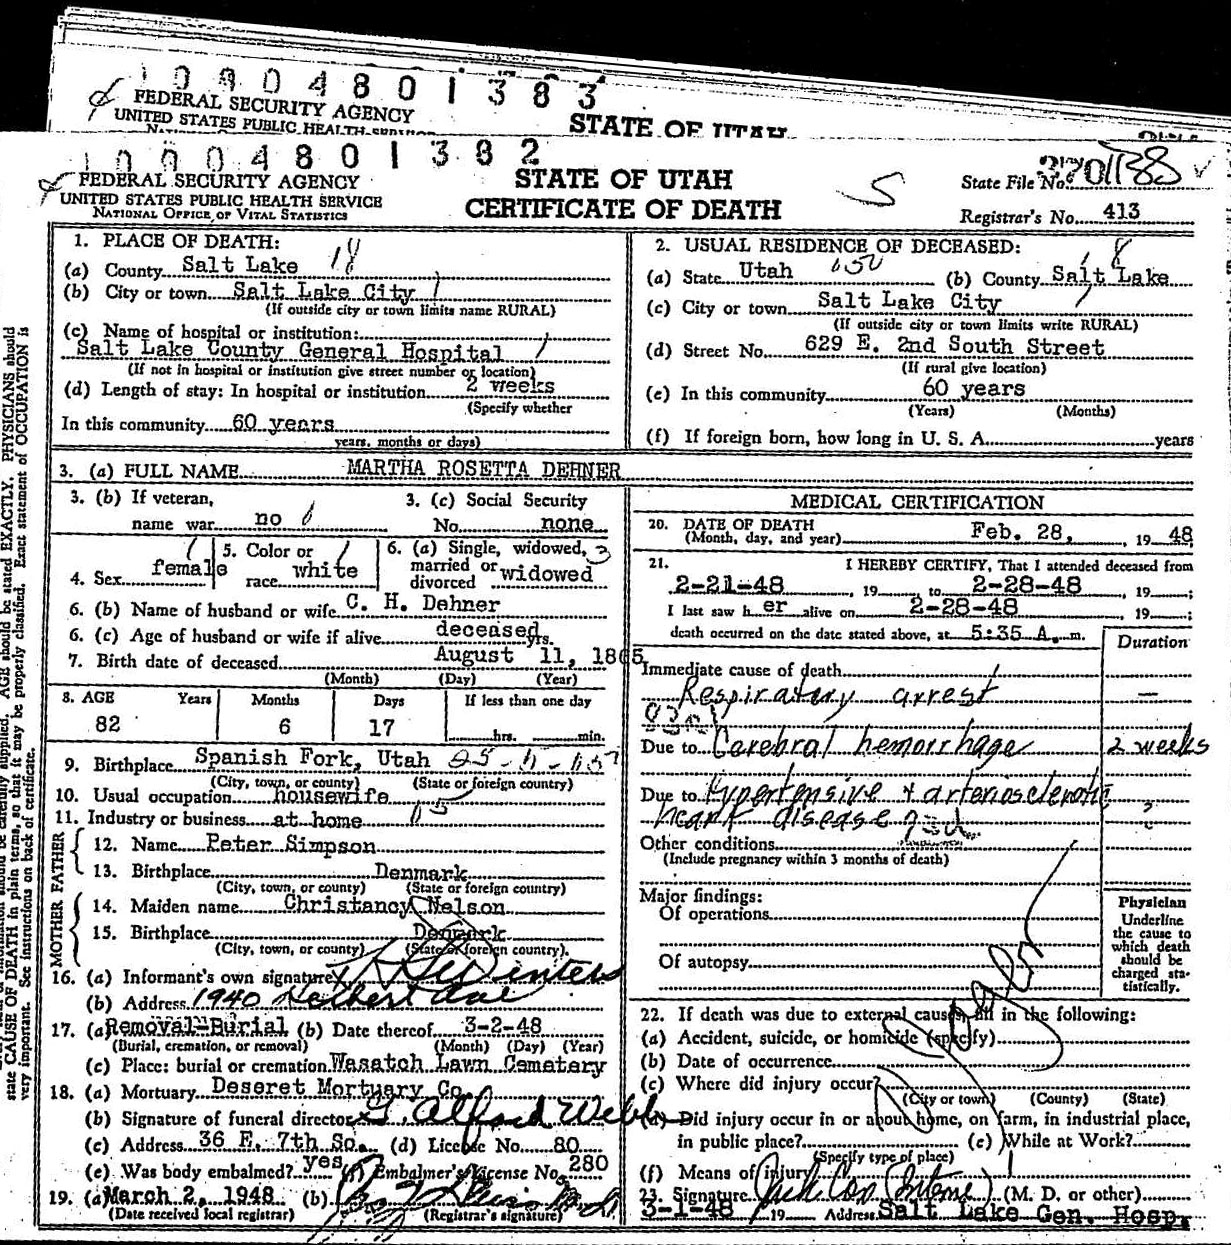 1 0 0 0 4 8 0 1 3 8 3
FEDERAL SECURITY AGENCY
UNITED STATES PUBLIC HEALTH SERVICE
STATE OF UTAH
1 0 0 0 4 8 0 1 3 8 2
FEDERAL SECURITY AGENCY
UNITED STATES PUBLIC HEALTH SERVICE
NATIONAL OFFICE OF VITAL STATISTICS
STATE OF UTAH
CERTIFICATE OF DEATH
5
State File No.
Registrar's No. 413
1. PLACE OF DEATH:
(a) County Salt Lake 18
(b) City or town Salt Lake City 1
(If outside city or town limits name RURAL)
(c) Name of hospital or institution:
Salt Lake County General Hospital 1
(If not in hospital or institution give street number or location)
(d) Length of stay: In hospital or institution 2 weeks
(Specify whether
In this community 60 years
years, months or days)
2. USUAL RESIDENCE OF DECEASED:
(a) State Utah 050 (b) County Salt Lake 18
(c) City or town Salt Lake City 1
(If outside city or town limits write RURAL)
(d) Street No. 629 E. 2nd South Street
(If rural give location)
(e) In this community 60 years
(Years) (Months)
(f) If foreign born, how long in U. S. A. years
3. (a) FULL NAME MARTHA ROSETTA DEHNER
3. (b) If veteran,
name war no
3. (c) Social Security
No. none
4. Sex female
5. Color or
race white
6. (a) Single, widowed,
married or
divorced widowed
6. (b) Name of husband or wife C. H. Dehner
6. (c) Age of husband or wife if alive deceased yrs.
7. Birth date of deceased August 11, 1865
(Month) (Day) (Year)
8. AGE Years Months Days If less than one day
82 6 17 hrs. min.
9. Birthplace Spanish Fork, Utah
(City, town, or county) (State or foreign country)
10. Usual occupation housewife
11. Industry or business at home
FATHER
12. Name Peter Simpson
13. Birthplace Denmark
(City, town, or county) (State or foreign country)
MOTHER
14. Maiden name Christancy Nelson
15. Birthplace Denmark
(City, town, or county) (State or foreign country)
16. (a) Informant's own signature Winters
(b) Address 1940 Ave
17. (a) Removal-Burial (b) Date thereof 3-2-48
(Burial, cremation, or removal) (Month) (Day) (Year)
(c) Place: burial or cremation Wasatch Lawn Cemetery
18. (a) Mortuary Deseret Mortuary Co.
(b) Signature of funeral director Alford Webb
(c) Address 36 E. 7th So. (d) License No. 80
(e) Was body embalmed? yes (f) Embalmer's License No. 280
19. (a) March 2, 1948 (b)
(Date received local registrar) (Registrar's signature)
MEDICAL CERTIFICATION
20. DATE OF DEATH
(Month, day, and year) Feb. 28, 19 48
21. I HEREBY CERTIFY, That I attended deceased from
2-21-48, 19 to 2-28-48, 19 ;
I last saw h er alive on 2-28-48 19 ;
death occurred on the date stated above, at 5:35 A. m.
Duration
Immediate cause of death
Respiratory arrest —
Due to Cerebral hemorrhage 2 weeks
Due to Hypertensive + arteriosclerotic
heart disease
Other conditions
(Include pregnancy within 3 months of death)
Major findings:
Of operations
Of autopsy
Physician
Underline
the cause to
which death
should be
charged sta-
tistically.
22. If death was due to external causes, fill in the following:
(a) Accident, suicide, or homicide (specify)
(b) Date of occurrence
(c) Where did injury occur?
(City or town) (County) (State)
(d) Did injury occur in or about home, on farm, in industrial place,
in public place? (e) While at Work?
(Specify type of place)
(f) Means of injury
23. Signature Jack Cox (Interne) (M. D. or other)
3-1-48 19 Address Salt Lake Gen. Hosp.
AGE should be stated EXACTLY. PHYSICIANS should
state CAUSE OF DEATH in plain terms, so that it may be properly classified. Exact statement of OCCUPATION is
very important. See instructions on back of certificate.